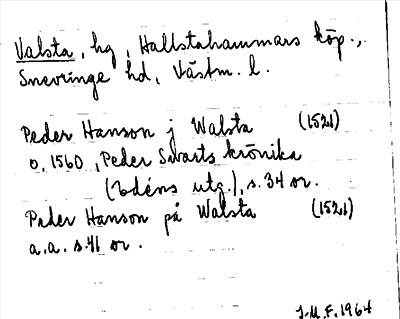 Valsta, hg, Hallstahammars köp.,
Snevringe hd, Västm. l.
Peder Hanson j Walsta (1521)
o. 1560, Peder Swarts krönika
(Edéns utg.), s. 34 or.
Peder Hanson på Walsta (1521)
a.a. s. 41 or.
J.M.F. 1964